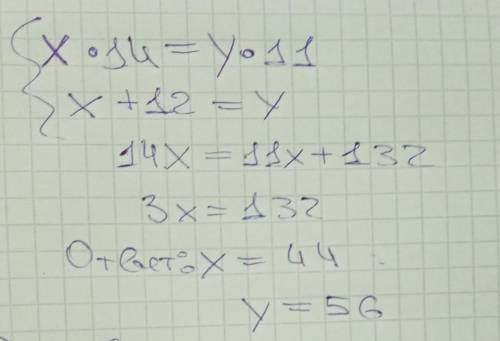 x • 14 = y • 11
x + 12 = y
14x = 11x + 132
3x = 132
Ответ: x = 44
y = 56